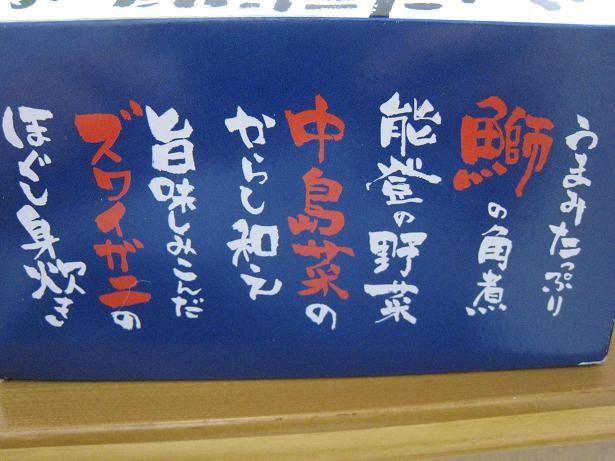 うまみたっぷり
鰤の角煮
能登の野菜
中島菜の
からし和え
旨味しみこんだ
ズワイガニの
ほぐし身炊き